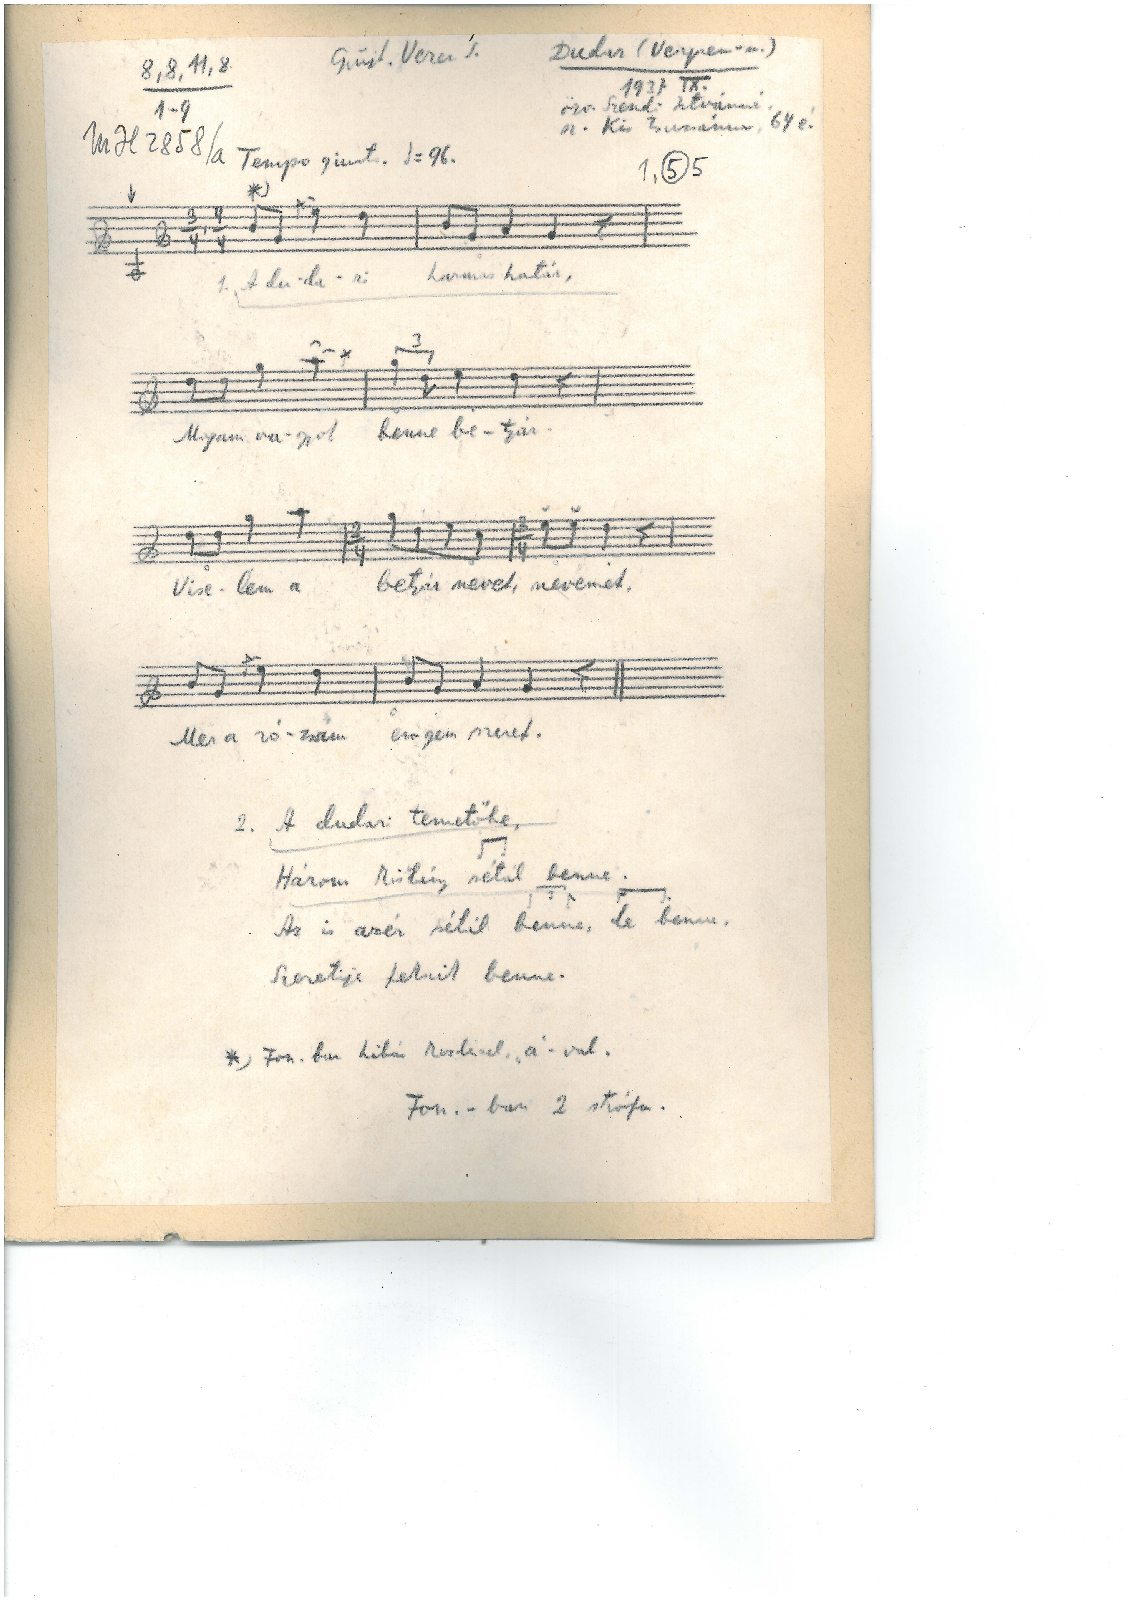 8, 8, 11, 8
1-9
Gűjt. Veress S.
Dudar (Veszprém-m.)
1937 IX.
özv. Szendi Istvánné,
sz. Kis Zsuzsánna, 64 é.
MH 2858/a
Tempo giusto. ♩=96.
1, 5 5
*)
1. A du-da-ri hármas határ,
3
Magam va-gyok benne be-tyár.
Vise-lem a betyár nevet, nevemet,
Mer a ró-zsám éngem szeret.
2. A dudari temetőbe,
Három kislány sétál benne.
Az is azér sétál benne, de benne,
Szeretője fekszik benne.
*) Fon.-ban hibás kezdéssel, á-val.
Fon.-ban 2 strófa.